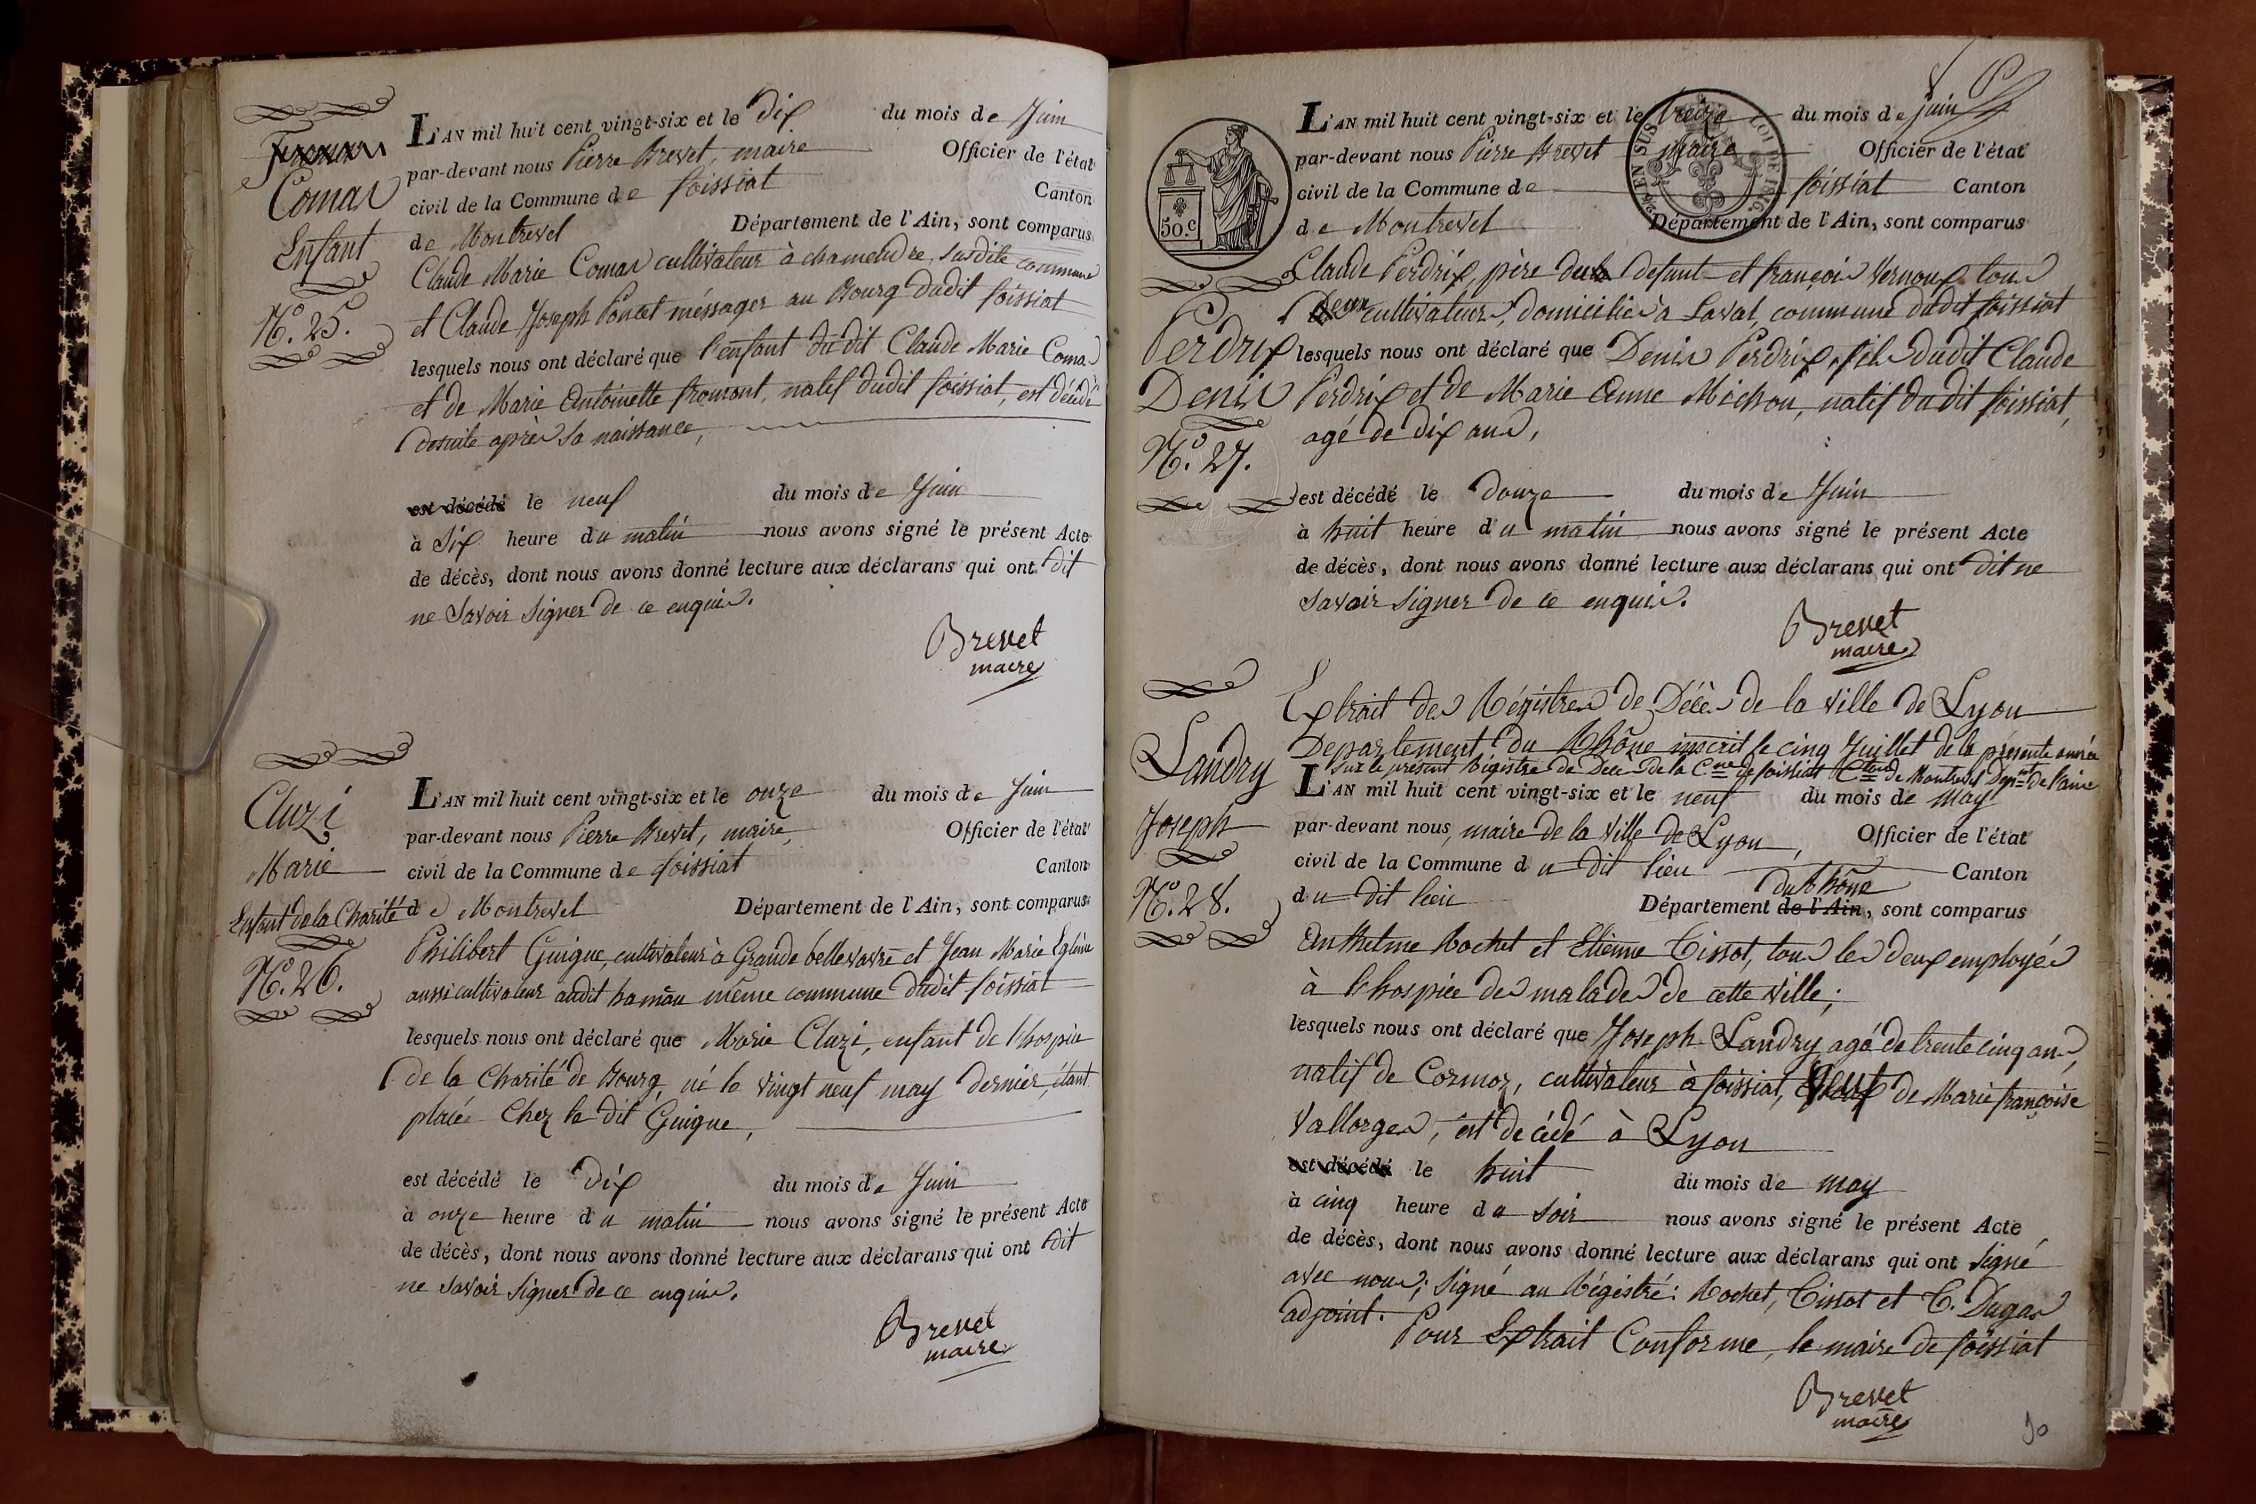 Comas
Enfant
N.o 25.
L'AN mil huit cent vingt-six et le dix du mois de Juin
par-devant nous Pierre Brevet, maire Officier de l'état
civil de la Commune de foissiat Canton
de Montrevel Département de l'Ain, sont comparus
Claude Marie Comas cultivateur à chamendre, susdite commune
et Claude Joseph Poncet méssager au Bourg dudit foissiat
lesquels nous ont déclaré que l'enfant du dit Claude Marie Comas
et de Marie Antoinette fromont, natif dudit foissiat, est décédé
desuite après sa naissance,
est décédé le neuf du mois de Juin
à six heure du matin nous avons signé le présent Acte
de décès, dont nous avons donné lecture aux déclarans qui ont dit
ne savoir signer de ce enquis.
Brevet
maire
Cluzi
Marie
Enfant de la Charité
N.o 26.
L'AN mil huit cent vingt-six et le onze du mois de Juin
par-devant nous Pierre Brevet, maire, Officier de l'état
civil de la Commune de foissiat Canton
de Montrevel Département de l'Ain, sont comparus
Philibert Guigue, cultivateur à Grande bellevavre et Jean Marie
aussi cultivateur audit hamau même commune dudit foissiat
lesquels nous ont déclaré que Marie Cluzi, enfant de l'hospice
de la Charité de Bourg, né le vingt neuf may dernier, étant
placée Chez le dit Guigue,
est décédé le dix du mois de Juin
à onze heure du matin nous avons signé le présent Acte
de décès, dont nous avons donné lecture aux déclarans qui ont dit
ne savoir signer de ce enquis.
Brevet
maire
50.C
EN SUS
LOI DE 1816
Perdrix
Denis
N.o 27.
L'AN mil huit cent vingt-six et le treize du mois de juin
par-devant nous Pierre Brevet maire Officier de l'état
civil de la Commune de foissiat Canton
de Montrevel Département de l'Ain, sont comparus
Claude Perdrix, père du defunt et françois Vernoux tous
Deux cultivateurs, domiciliés à Laval, commune dudit foissiat
lesquels nous ont déclaré que Denis Perdrix, fils dudit Claude
Perdrix et de Marie Anne Michon, natif dudit foissiat,
agé de dix ans,
est décédé le douze du mois de Juin
à huit heure du matin nous avons signé le présent Acte
de décès, dont nous avons donné lecture aux déclarans qui ont dit ne
savoir signer de ce enquis.
Brevet
maire
Landry
Joseph
N.o 28.
Extrait des Régistres de Décès de la ville de Lyon
Département du Rhône inscrit le cinq Juillet de la présente année
sur le présent Régistre de Décès de la Cne de foissiat Cton de Montrevel Dépmt de l'ain
L'AN mil huit cent vingt-six et le neuf du mois de may
par-devant nous, maire de la ville de Lyon, Officier de l'état
civil de la Commune du dit lieu Canton
du dit lieu Département de l'Ain du Rhône, sont comparus
Anthelme Rochet et Etienne Tissot, tous les deux employés
à l'hospice des malades de cette ville;
lesquels nous ont déclaré que Joseph Landry agé de trente cinq ans,
natif de Cormoz, cultivateur à foissiat, Epoux de Marie françoise
Vallorges, est décédé à Lyon
est décédé le huit du mois de may
à cinq heure du soir nous avons signé le présent Acte
de décès, dont nous avons donné lecture aux déclarans qui ont signé
avec nous; signé au Régistré: Rochet, Tissot et C. Dugas
adjoint. Pour Extrait Conforme, le maire de foissiat
Brevet
maire